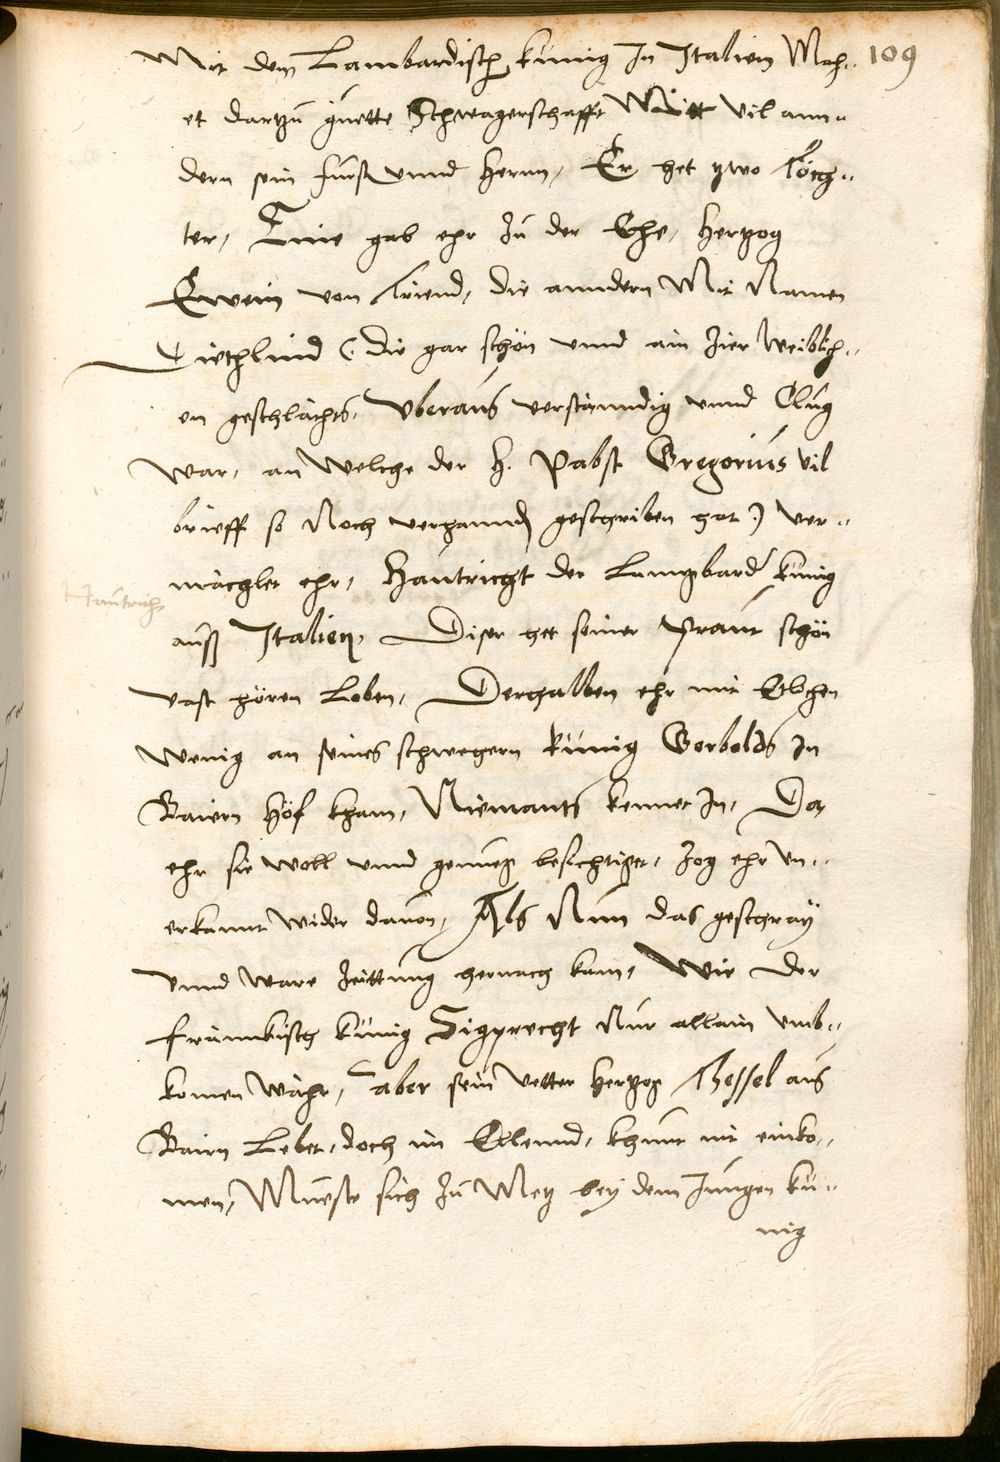 109
Mit dem Lambardisch künig In Italien Mach-
et dartzu guette Schwagerschafft Mitt vil ann-
dern sein fürst vnnd herrn, Er het zwo Töch-
ter, Eine gab ehr zu der Ehe, hertzog
Ewein von Triend, die anndern Mit Namen
Diethlind (: die gar schön vnnd ain zier Weiblich-
en geschlächts, vberaus verständig vnnd Clug
war, an welche der H. Pabst Gregorius vil
brieff so Noch verhannd, geschriben hat :) ver-
mächlet ehr, Hautricht der Lungbard künig
Hautrich
auß Italien, Diser het seiner Praut schön
vast hören Loben, Derhalben ehr mit Etlichen
wenig an seines schwegern künig Gorbolds In
Bairn Hof kham, Niemants kennet In, Da
ehr sie woll vnnd genueg besichtiget, zog ehr vn-
erkannt wider dauon, Als Nun das geschray
vnnd ware Zeittung hernach kam, Wie der
frännkisch künig Sigprecht Nur allain vmb-
komen wahr, aber sein vetter hertzog Thessel aus
Bairn Lebet, doch im Ellennd, khunt nit einko-
men, Mueste sich zu Metz bey dem Jungen kü-
nig